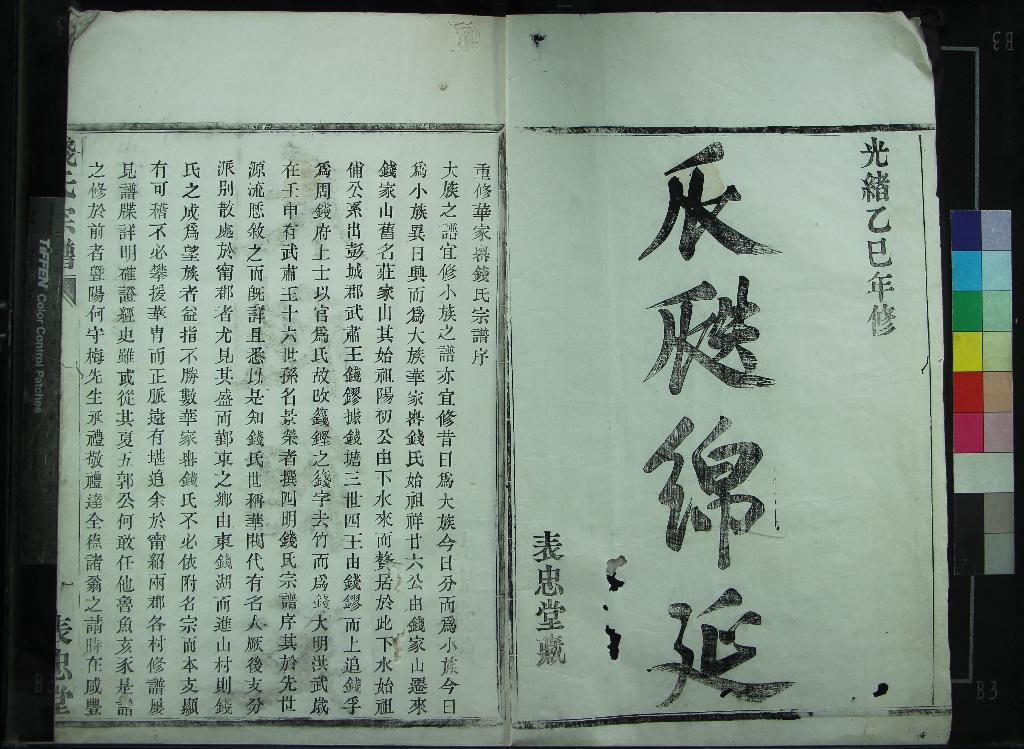 光緒乙巳年修
瓜瓞綿延
表忠堂藏
重修華家嶴錢氏宗譜序
大族之譜宜修小族之譜亦宜修昔日為大族今日分而為小族今日
為小族異日興而為大族華家嶴錢氏始祖祥廿六公由錢家山遷來
錢家山舊名莊家山其始祖陽初公由下水來而贅居於此下水始祖
備公系出彭城郡武肅王錢鏐據錢塘三世四王由錢鏐而上追錢孚
為周錢府上士以官為氏故改籛鏗之籛字去竹而為錢大明洪武歲
在壬申有武肅王十六世孫名景榮者撰四明錢氏宗譜序其於先世
源流歷敘之而旣詳且悉以是知錢氏世稱華閥代有名人厥後支分
派別散處於甯郡者尤見其盛而鄞東之鄉由東錢湖而進山村則錢
氏之成為望族者益指不勝數華家嶴錢氏不必依附名宗而本支顯
有可稽不必攀援華胄而正脈遠有堪追余於甯紹兩郡各村修譜屢
見譜牒詳明確證經史雖或從其夏五郭公何敢任他魯魚亥豕是譜
之修於前者暨陽何守梅先生承禮敬禮達全德諸翁之請時在咸豐
錢氏宗譜
一
表忠堂
TIFFEN Color Control Patches
B3
B3
B3